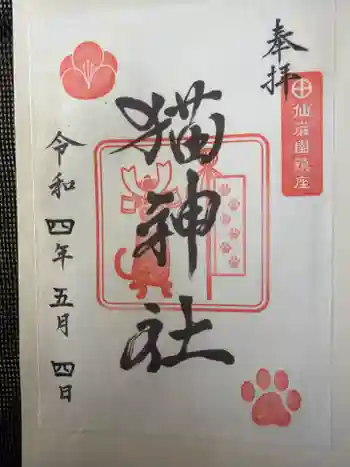 奉拝
仙巌園鎮座
猫神社
令和四年五月四日